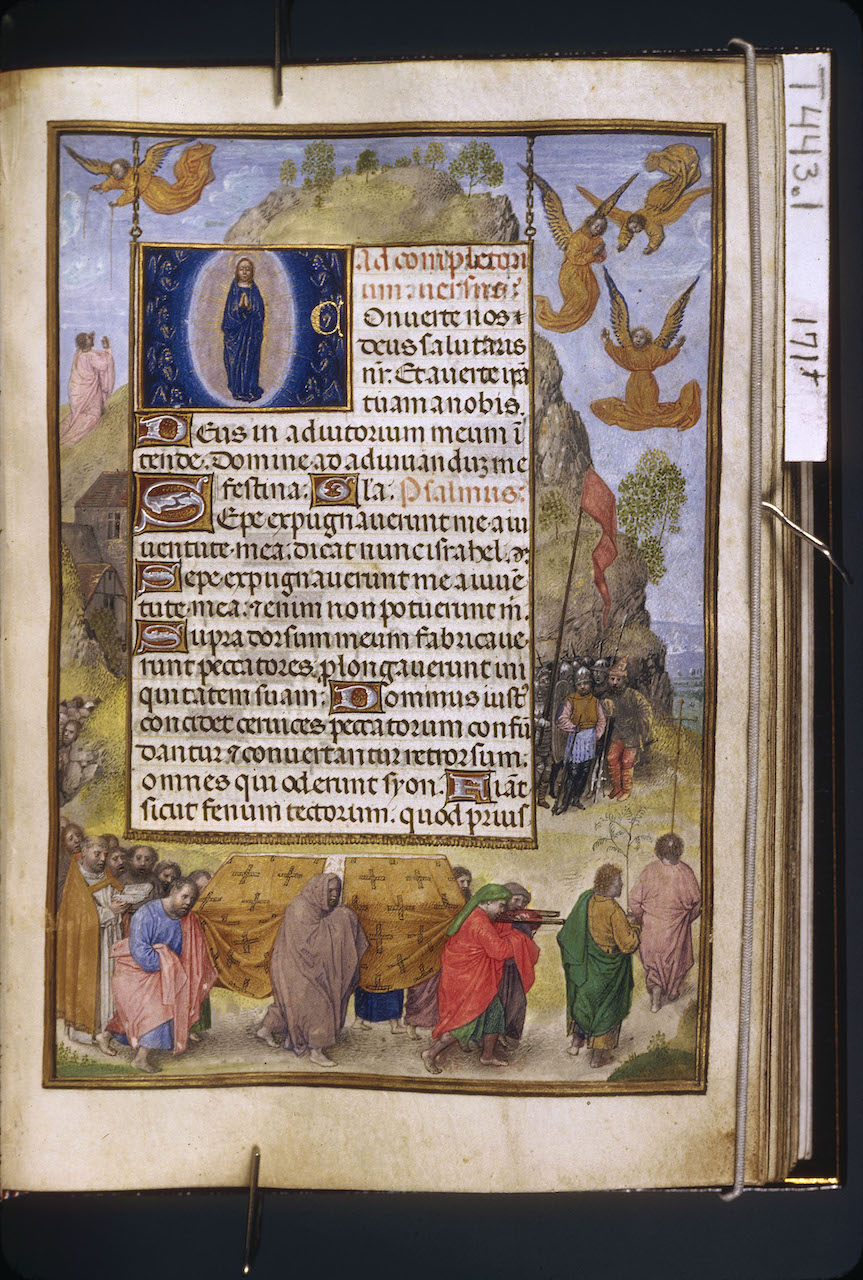 Ad completori
um. versus:
Onuerte nos
deus salutaris
nr̄. Et auerte irā
tuam a nobis.
Deus in adiutorium meum ī
tende. Domine ad adiuuanduz me
festina. Gla. Psalmus:
Sepe expugnauerunt me a iu
uentute mea. dicat nunc israhel.
Sepe expugnauerunt me a iuuē
tute mea: ⁊ enim non potuerunt m̄.
Supra dorsum meum fabricaue
runt peccatores. plongauerunt ini
quitatem suam: Dominus iust
concidet ceruices peccatorum confū
dantur ⁊ conuertantur retrorsum.
omnes qui oderunt syon. Fiāt
sicut fenum tectorum. quod prius
T443.1
171r